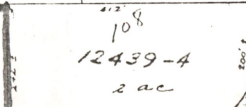 412'
108
12439-4
2 ac
200'±